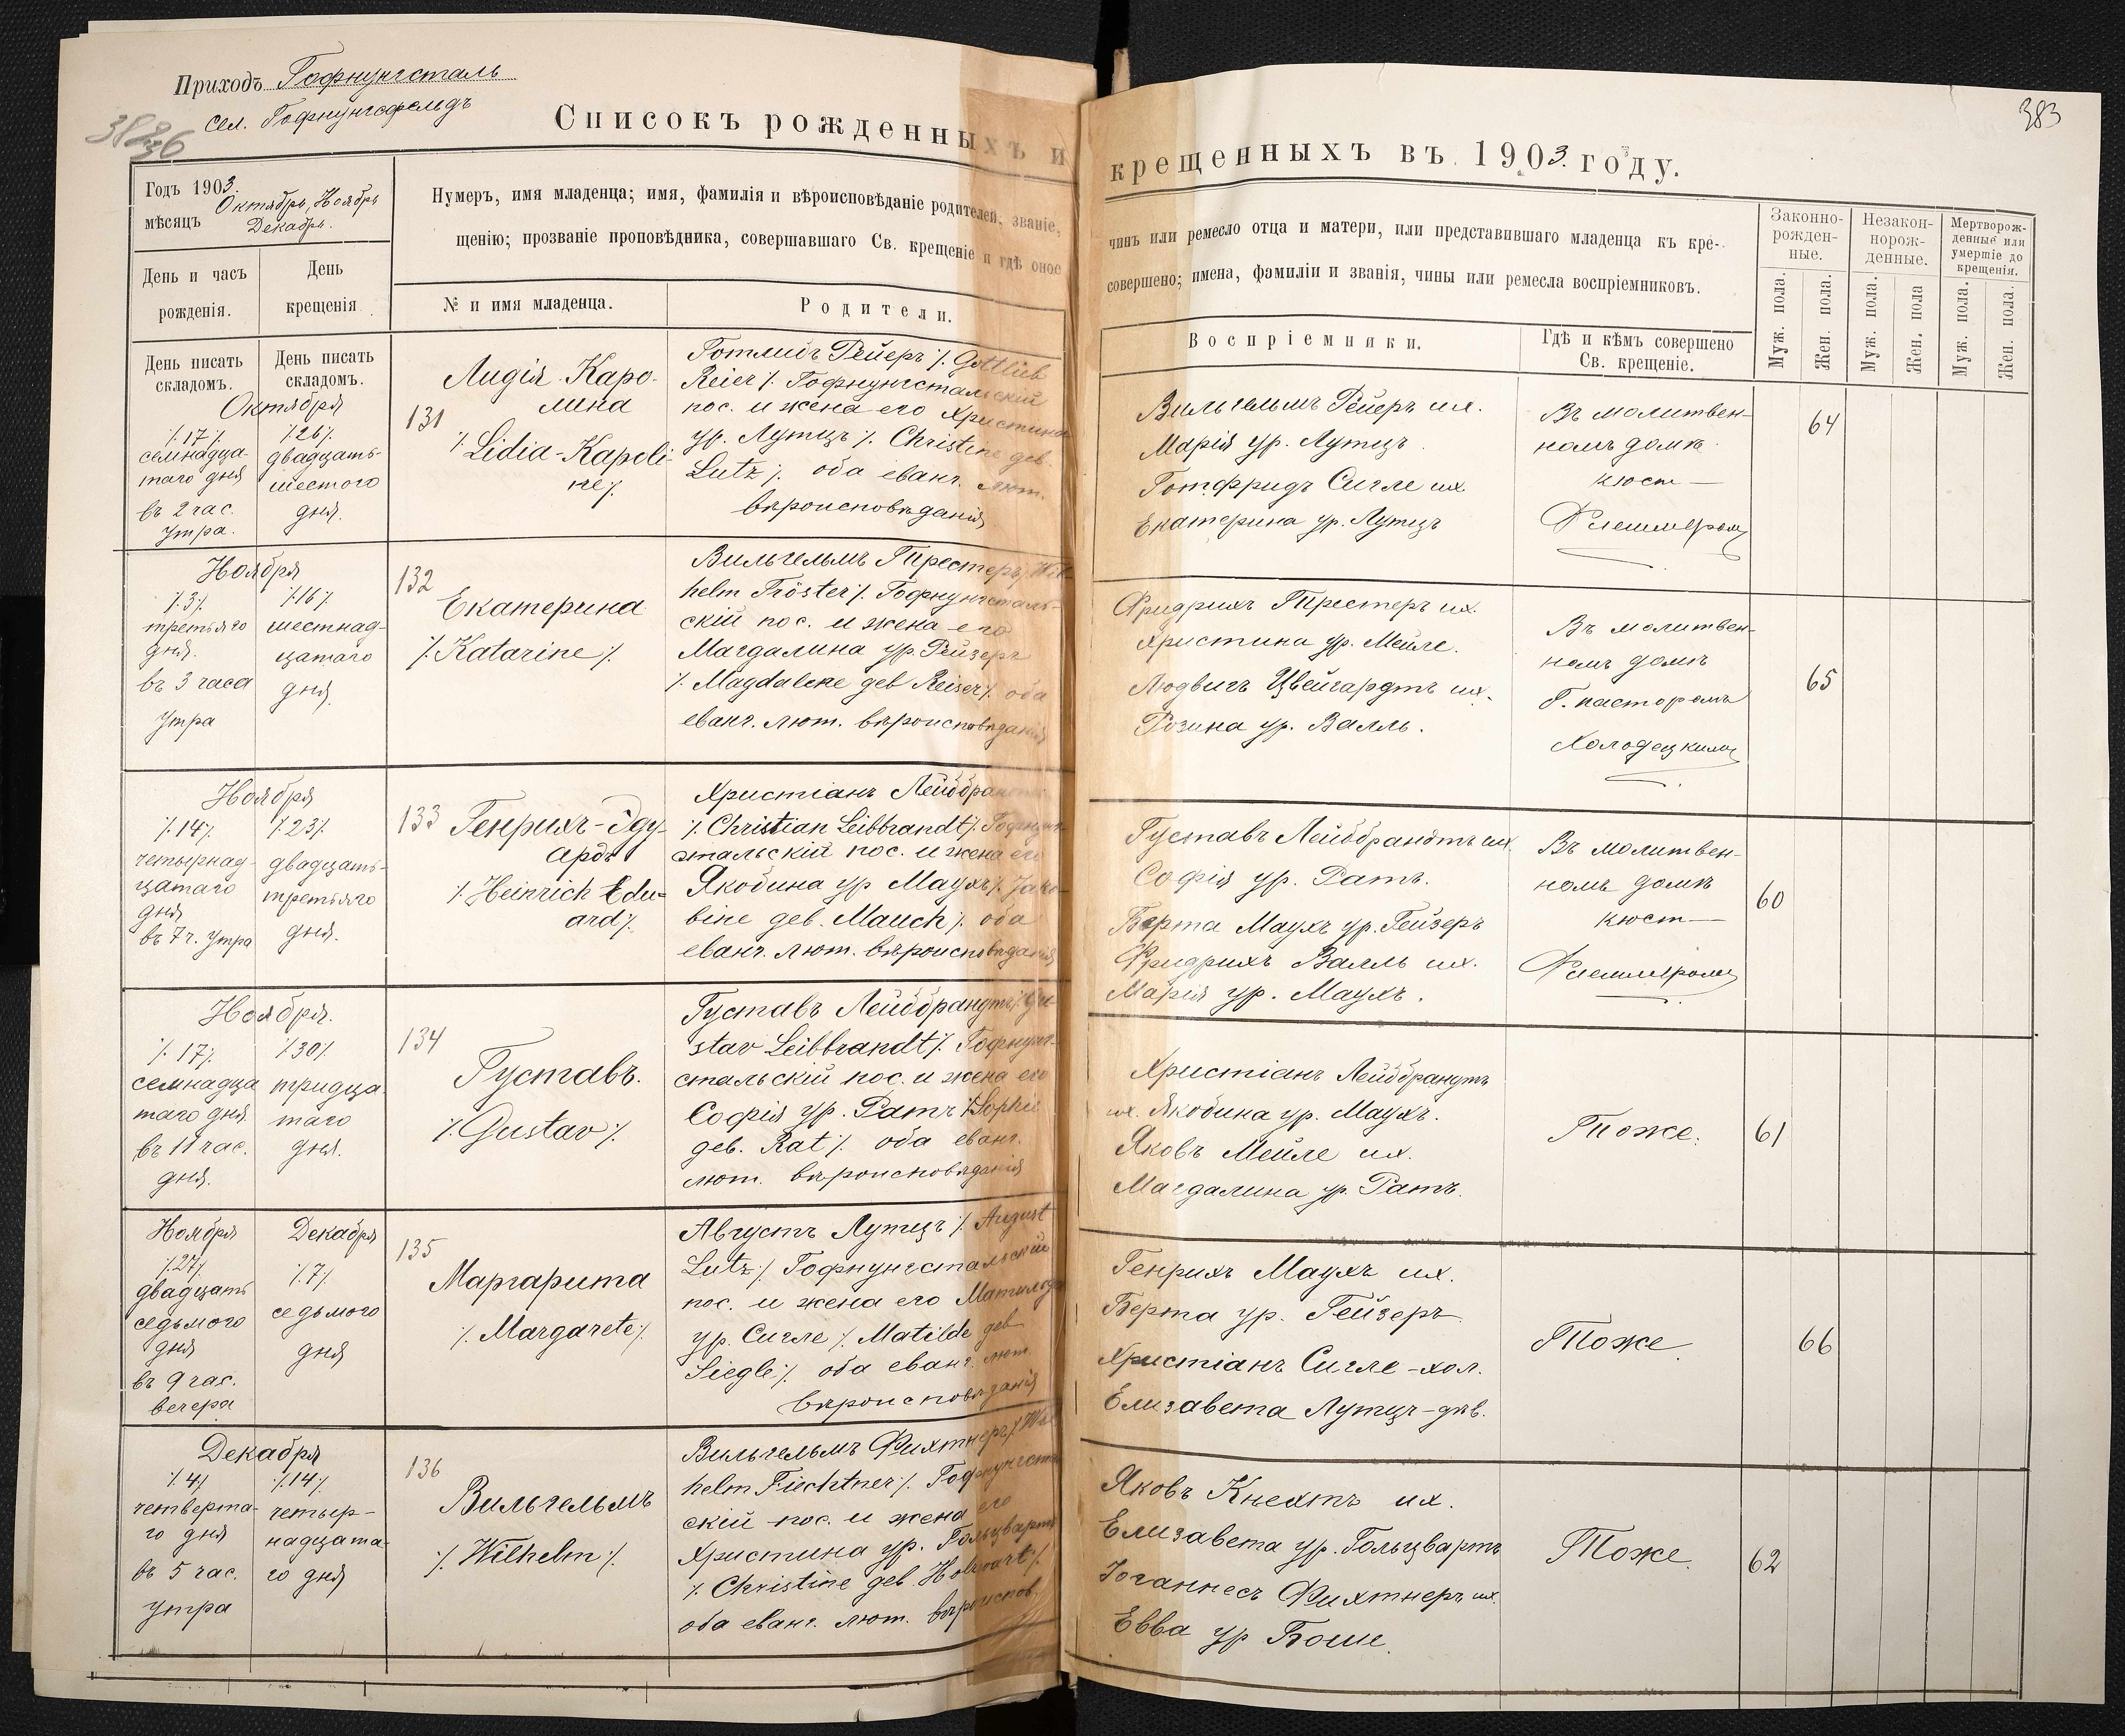 Приходъ Гофнунгсталь
сел. Гофнунгсфельдъ
Списокъ рожденныхъ и
Годъ 1903.
мѣсяцъ Октябрь, Ноябрь
Декабрь.
Нумеръ, имя младенца; имя, фамилія и вѣроисповѣданіе родителей, званіе,
щенію; прозваніе проповѣдника, совершавшаго Св. крещеніе и гдѣ оное
День и часъ
рожденія.
День
крещенія
№ и имя младенца.
Родители.
День писать
складомъ.
День писать
складомъ.
Октября
/.17/.
семнадца-
таго дня
въ 2 час.
утра.
/.26/.
двадцать-
шестого
дня.
131
Лидія Каро-
лина
/. Lidia-Karoli-
ne/.
Готлибъ Рейеръ /. Gottlieb
Reier/. Гофнунгстальскій
пос. и жена его Христина
ур. Лутцъ /. Christine geb.
Lutz/. оба еванг. лют.
вѣроисповѣданія
Ноября
/.3/.
третьяго
дня.
въ 3 часа
утра
/.16/.
шестнад-
цатаго
дня.
132
Екатерина
/. Katarine /.
Вильгельмъ Трестеръ /. Wil-
helm Tröster/. Гофнунгсталь-
скій пос. и жена его
Магдалина ур. Рейзеръ
/. Magdalene geb Reiser/. оба
еванг. лют. вѣроисповѣданія
Ноября
/.14/.
четырнад-
цатаго
дня
въ 7 ч. утра
/.23/.
двадцать-
третьяго
дня.
133
Генрихъ-Эду-
ардъ
/. Heinrich Edu-
ard/.
Христіанъ Лейббрандтъ
/. Christian Leibbrandt/. Гофнунг-
стальскій пос. и жена его
Якобина ур Маухъ /. Jako-
bine geb. Mauch/. оба
еванг. лют. вѣроисповѣданія
Ноября.
/. 17/.
семнадца
таго дня
въ 11 час.
дня.
/.30/.
тридца-
таго
дня.
134
Густавъ.
/. Gustav /.
Густавъ Лейббрандтъ /. Gu-
stav Leibbrandt/. Гофнунг-
стальскій пос. и жена его
Софія ур. Ратъ /. Sophie
geb. Rat/. оба еванг.
лют. вѣроисповѣданія
Ноября
/.27/.
двадцать
седьмого
дня
въ 9 час.
вечера
Декабря
/.7/.
седьмого
дня
135
Маргарита
/. Margarete/.
Августъ Лутцъ /. August
Lutz/. Гофнунгстальскій
пос. и жена его Матильда
ур. Сигле /. Matilde geb
Siegle/. оба еванг. лют.
вѣроисповѣданія
Декабря
/.4/.
четверта-
го дня
въ 5 час.
утра
/.14/.
четыр-
надцата-
го дня
136
Вильгельмъ
/. Wilhelm /.
Вильгельмъ Фихтнеръ /. Wil
helm Fiechtner/. Гофнунгсталь
скій пос. и жена его
Христина ур. Гольцвартъ
/. Christine geb. Holzwart/.
оба еванг. лют. вѣроиспов.
383
крещенныхъ въ 1903. году.
чинъ или ремесло отца и матери, или представившаго младенца къ кре-
совершено; имена, фамиліи и званія, чины или ремесла воспріемниковъ.
Воспріемники.
Гдѣ и кѣмъ совершено
Св. крещеніе.
Законно-
рожден-
ные.
Незакон-
норож-
денные.
Мертворож-
денные или
умершіе до
крещенія.
Муж. пола.
Жен. пола.
Муж. пола.
Жен. пола
Муж. пола.
Жен. пола.
Вильгельмъ Рейеръ их.
Марія ур. Лутцъ
Готфридъ Сигле их
Екатерина ур. Лутцъ
Въ молитвен-
номъ домѣ
кюст—
64
Фридрихъ Трестеръ их.
Христина ур. Мейле.
Людвигъ Цвейгардтъ их.
Розина ур. Валль.
Въ молитвен-
номъ домѣ
Г. пасторомъ
Холодецкимъ
65
Густавъ Лейббрандтъ их
Софія ур. Ратъ.
Берта Маухъ ур. Гейзеръ
Фридрихъ Валль их.
Марія ур. Маухъ.
Въ молитвен-
номъ домѣ
кюст—
60
Христіанъ Лейббрандтъ
их. Якобина ур. Маухъ.
Яковъ Мейле их.
Магдалина ур. Ратъ.
Тоже.
61
Генрихъ Маухъ их.
Берта ур. Гейзеръ
Христіанъ Сигле-хол.
Елизавета Лутцъ-дѣв.
Тоже
66
Яковъ Кнехтъ их.
Елизавета ур. Гольцвартъ
Іоганнесъ Фихтнеръ их.
Евва ур Боше.
Тоже.
62